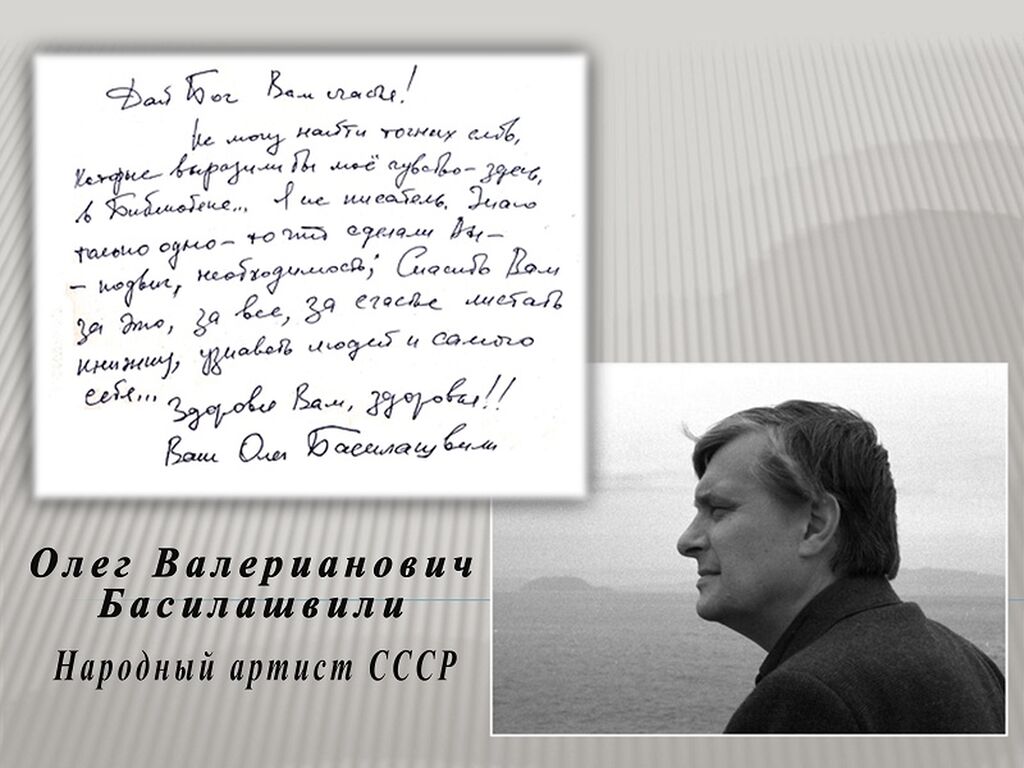 Дай Бог Вам счастья!
Не могу найти точных слов,
которые выразили бы моё чувство – здесь,
в Библиотеке... Я не писатель. Знаю
только одно – то что сделали Вы –
– подвиг, необходимость; Спасибо Вам
за это, за все, за счастье листать
книжку, узнавать людей и самого
себя...
Здоровья Вам, здоровья!!
Ваш Олег Басилашвили
Олег Валерианович
Басилашвили
Народный артист СССР